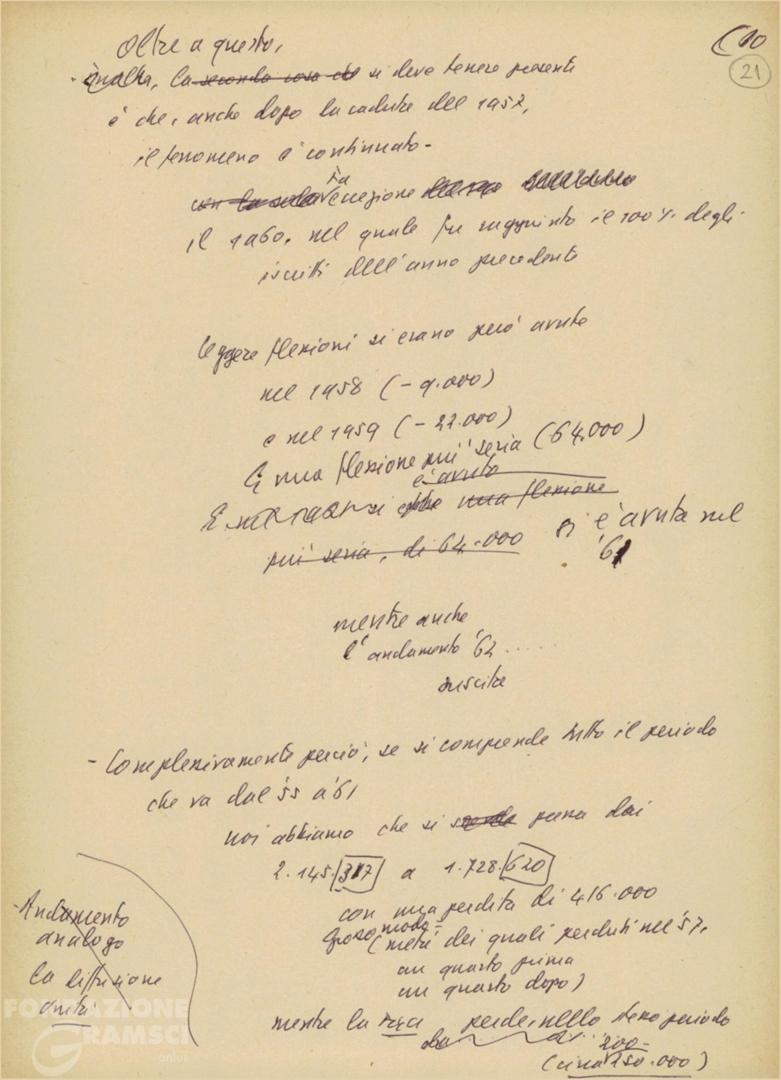 C 10
21
Oltre a questo,
- inoltre, la seconda cosa che si deve tenere presente
è che, anche dopo la caduta del 1957,
il fenomeno è continuato -
con la sola Fa eccezione
il 1960, nel quale fu raggiunto il 100% degli
iscritti dell'anno precedente
leggere flessioni si erano però avute
nel 1958 (- 9.000)
e nel 1959 (- 22.000)
E una flessione più seria (64.000)
è avuta
E nel 1961 si una flessione
più seria, di 64.000 si è avuta nel
'61
mentre anche
l'andamento '62 .....
suscita
- Complessivamente perciò, se si comprende tutto il periodo
che va dal '55 a '61
noi abbiamo che si passa dai
2.145.317 a 1.728.620
con una perdita di 416.000
Grosso modo =
(metà dei quali perduti nel '57,
un quarto prima
un quarto dopo)
- Andamento
analogo
la diffusione
unità
mentre la perde, nello stesso periodo
200-
(circa 250.000)
FONDAZIONE
GRAMSCI
onlus